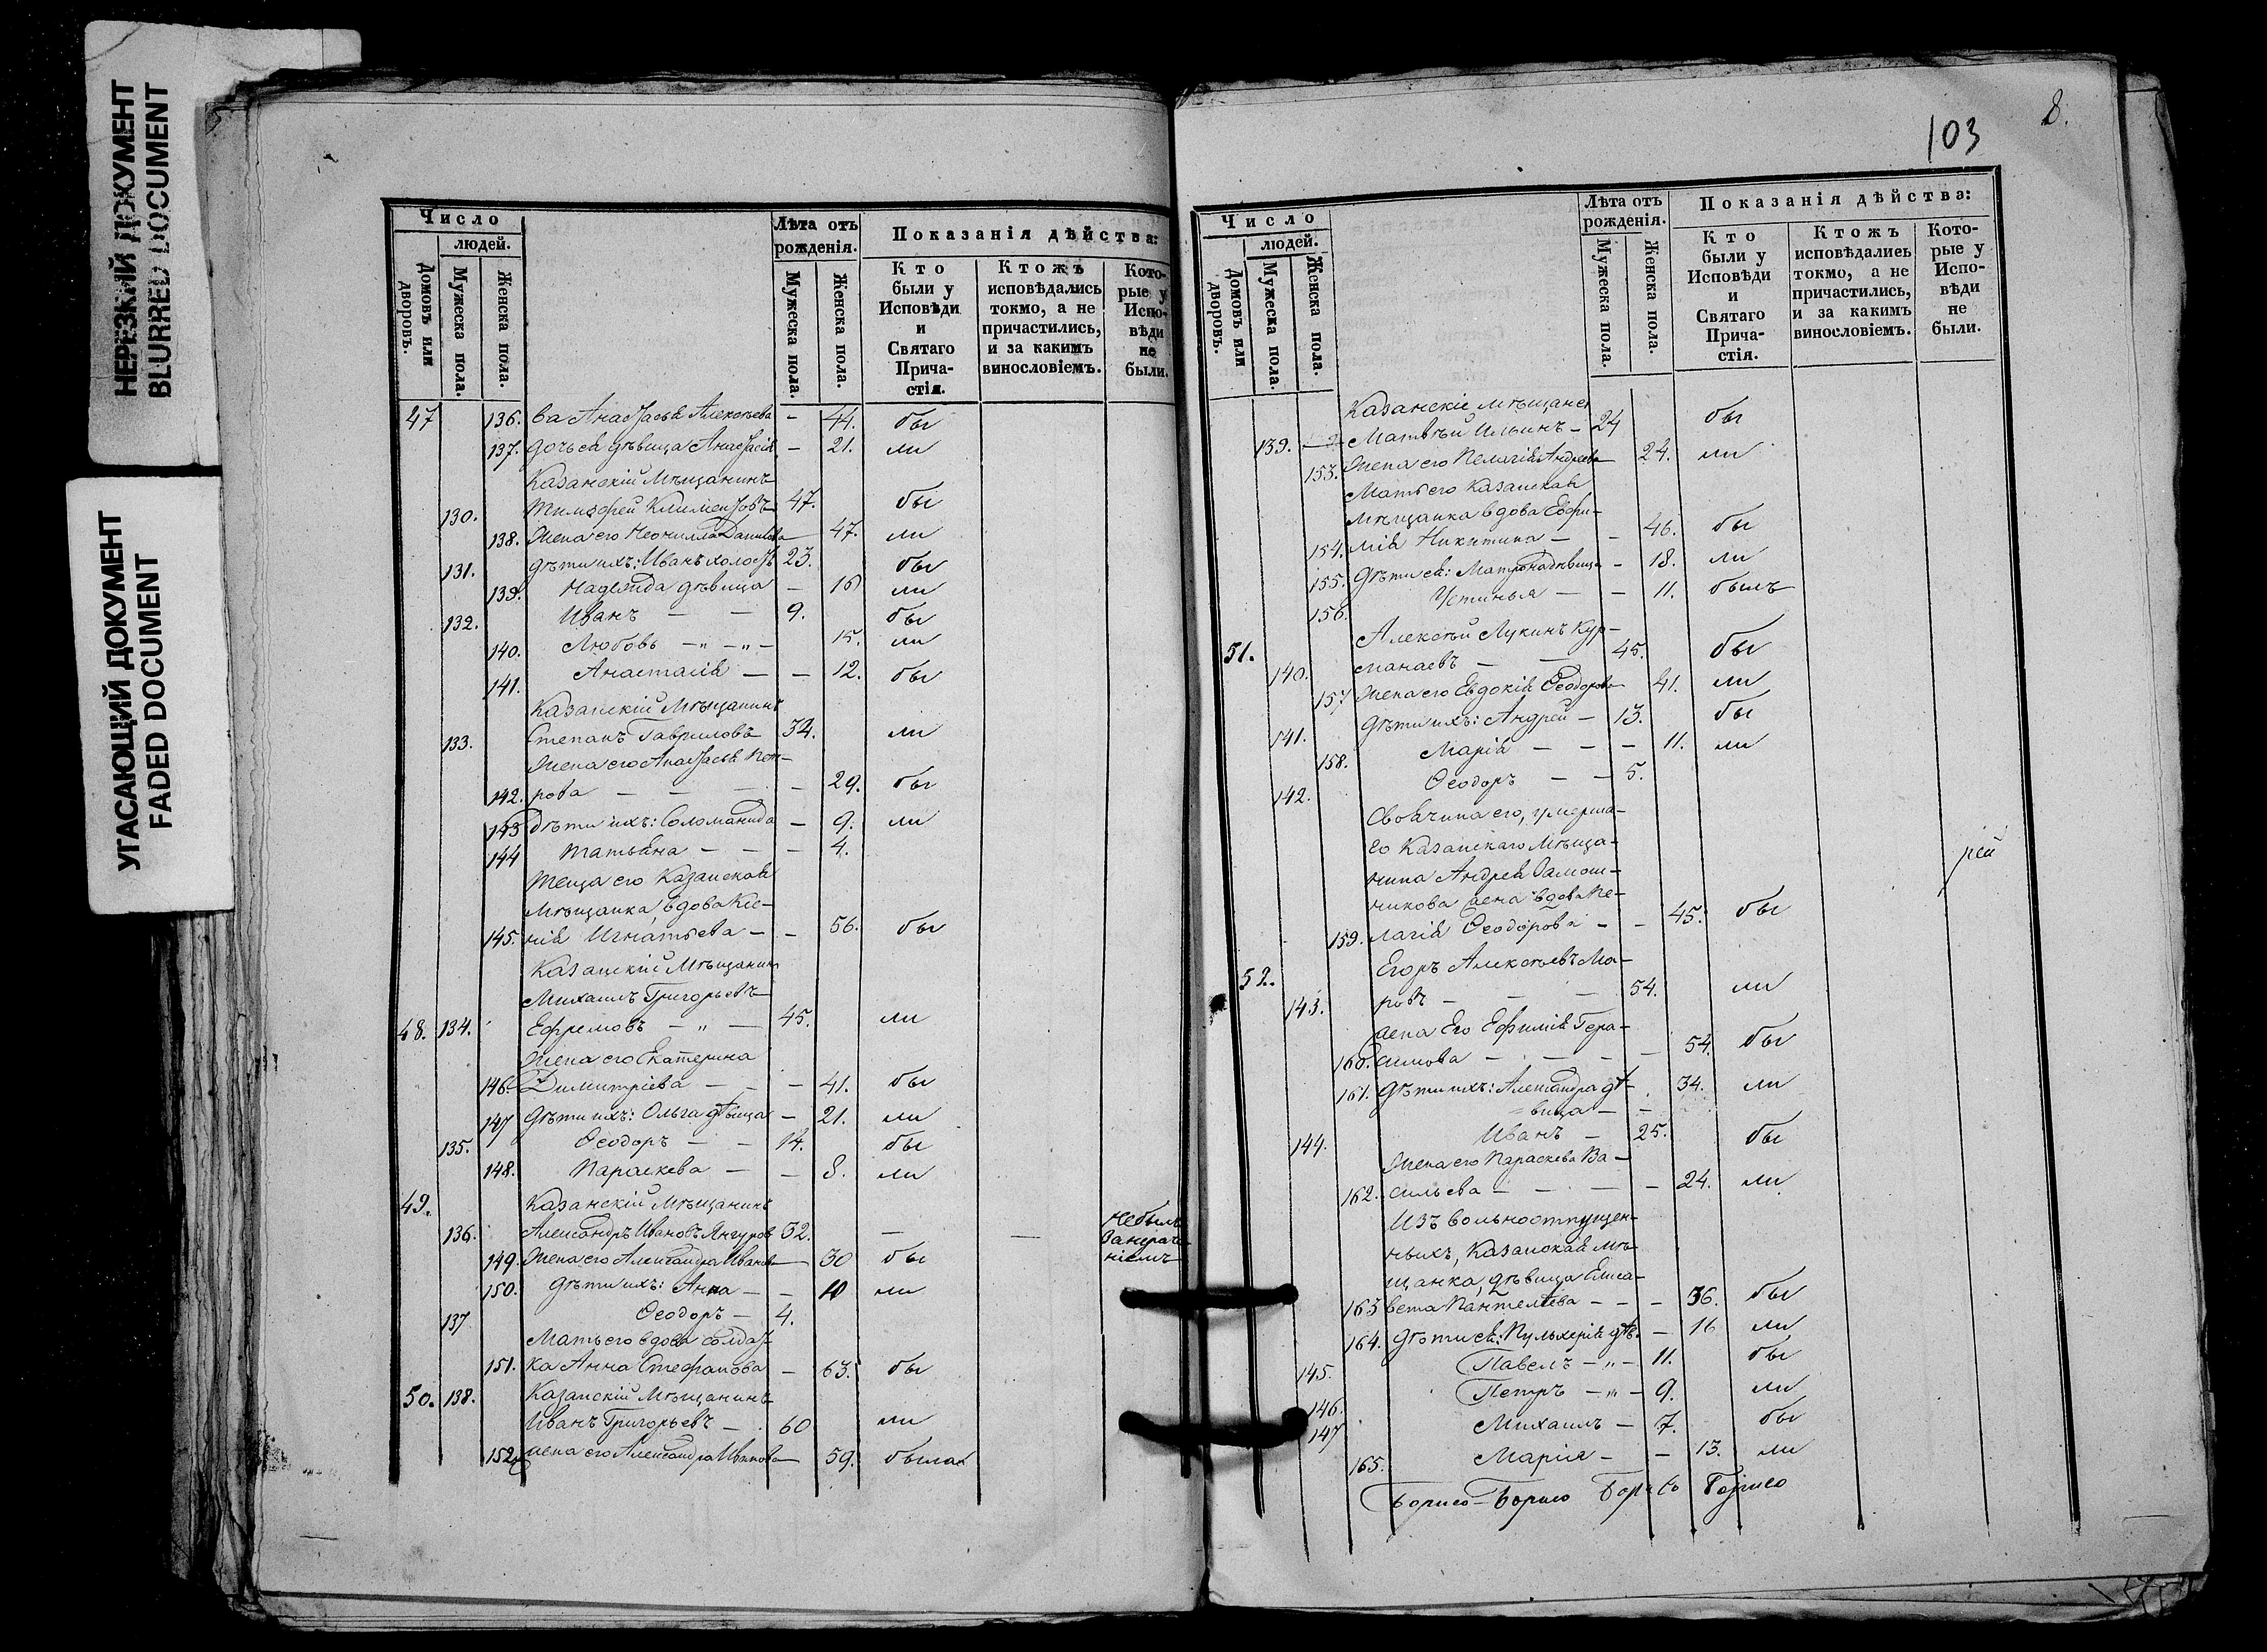 НЕРЕЗКИЙ ДОКУМЕНТ
BLURRED DOCUMENT
УГАСАЮЩИЙ ДОКУМЕНТ
FADED DOCUMENT
Число
людей.
Домовъ или дворовъ.
Мужеска пола.
Женска пола.
Лѣта отъ рожденія.
Мужеска пола.
Женска пола.
Показанія дѣйства:
Кто были у Исповѣди и Святаго Прича-стія.
Ктожъ исповѣдались токмо, а не причастились, и за какимъ винословіемъ.
Кото-рые у Испо-вѣди не были.
47 136. ва Анастасья Алексѣева - 44. бы
137. дочь ея дѣвица Анастасія - 21. ли
Казанскій Мѣщанинъ
130. Тимофей Климентовъ 47. бы
138. Жена его Неонилла Данилова 47. ли
131. дѣти ихъ: Иванъ холостъ 23. бы
139. Надежда дѣвица - 16 ли
132. Иванъ - - 9. бы
140. Любовь -"-"- 15. ли
141. Анастасія - - 12. бы
Казанскій Мѣщанинъ
133. Степанъ Гавриловъ 34. ли
Жена его Анастасья Пет-
142. рова - - - - 29. бы
143 дѣти ихъ: Соломанида - 9. ли
144 Татьяна - - - 4.
Теща его Казанская
Мѣщанка, вдова Ксе-
145. нія Игнатьева - - 56. бы
Казанскій Мѣщанинъ
Михаилъ Григорьевъ
48. 134. Ефремовъ - " - 45. ли
Жена его Екатерина
146. Димитріева - - - 41. бы
147 дѣти ихъ: Ольга дѣвица - 21. ли
135. Ѳеодоръ - - 14. бы
148. Параскева - - 8. ли
49. Казанскій Мѣщанинъ
136. Александръ Ивановъ 32. - - Небылъ
149. Жена его Александра Иванова 30 бы ніемъ
150. дѣти ихъ: Анна - - 10 ли
137 Ѳеодоръ - 4.
Мать его вдова солдат-
151. ка Анна Стефанова - 63. бы
50. 138. Казанскій Мѣщанинъ
Иванъ Григорьевъ - 60 ли
152. жена его Александра Иванова 59. была
103
8.
Число
людей.
Домовъ или дворовъ.
Мужеска пола.
Женска пола.
Лѣта отъ рожденія.
Мужеска пола.
Женска пола.
Показанія дѣйства:
Кто были у Исповѣди и Святаго Прича-стія.
Ктожъ исповѣдались токмо, а не причастились, и за какимъ винословіемъ.
Кото-рые у Испо-вѣди не были.
Казанскіе мѣщане
139. Матвѣй Ильинъ - 24 бы
153. Жена его Пелагія Андреева 24. ли
Мать его Казанская
мѣщанка вдова Евфи-
154. мія Никитина - - 46. бы
155. дѣти ея: Матрона дѣвица - 18. ли
156. Устинья - - 11. былъ
51. Алексѣй Лукинъ Кур-
140. манаевъ - - 45. бы
157 Жена его Евдокія Ѳеодорова 41. ли
141. дѣти ихъ: Андрей - 13. бы
158. Марія - - - 11. ли
142. Ѳеодоръ - - 5.
Своячина его, умерша-
го Казанскаго Мѣща-
нина Андрея
никова жена вдова Пе-
159. лагія Ѳеодорова - - 45. бы
рей
52. Егоръ Алексѣевъ Ма-
143. ровъ - - - 54. ли
жена Его Ефимія Гера-
160. симова - - - - 54. бы
161. дѣти ихъ: Александра дѣ- 34. ли
вица - -
144. Иванъ - 25. бы
Жена его Параскева Ва-
162. сильева - - - - 24. ли
Изъ вольноотпущен-
ныхъ, Казанская мѣ-
щанка, дѣвица Елиса-
163 вета Пантелѣева - - - 36. бы
164. дѣти ея: Пульхерія дѣв. - 16 ли
145. Павелъ -"- 11. бы
146. Петръ -"- 9. ли
147 Михаилъ - 7. бы
165. Марія - - 13. ли
Борисо- Борисо Борисо Борисо